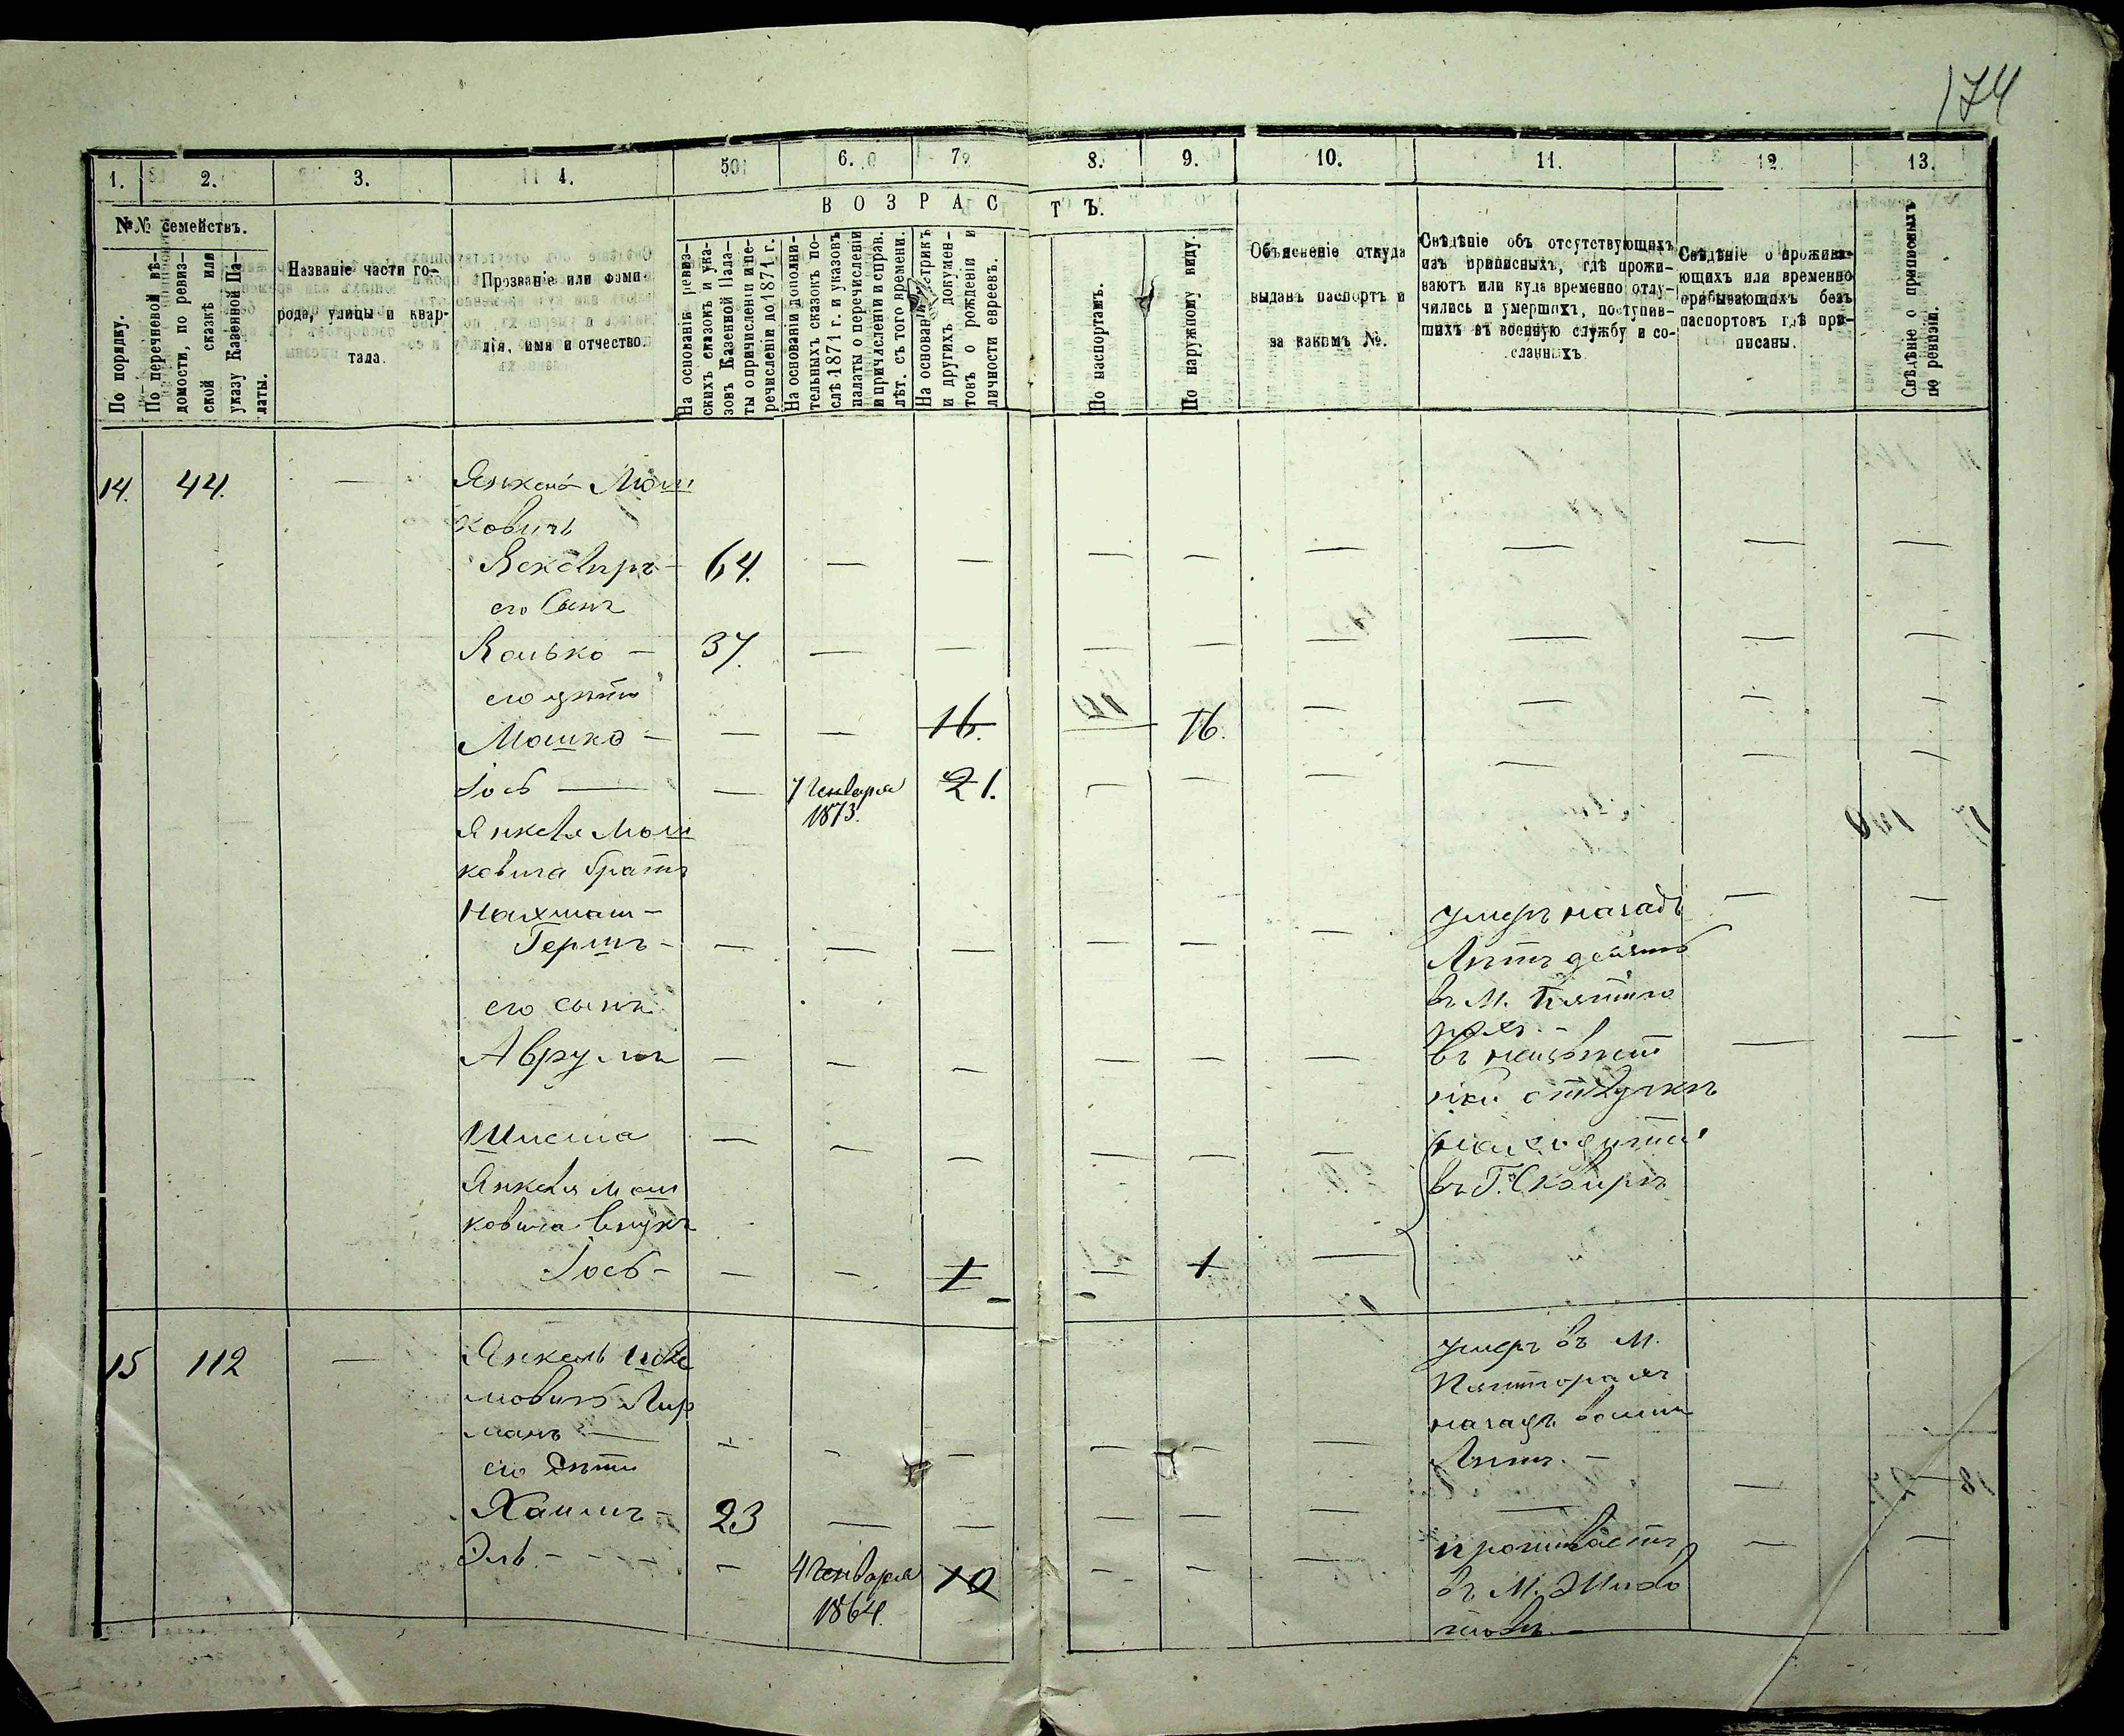 174
1. 2. 3. 4. 5. 6. 7. 8. 9. 10. 11. 12. 13.
№№ семействъ.
По порядку.
По перечневой вѣ-
домости, по ревиз-
ской сказкѣ или
указу Казенной Па-
латы.
Названіе части го-
рода, улицы и квар-
тала.
Прозваніе или фами-
лія, имя и отчество.
ВОЗРАСТЪ.
На основаніи ревиз-
скихъ сказокъ и ука-
зовъ Казенной Пала-
ты о причисленіи и пе-
речисленіи до 1871 г.
На основаніи дополни-
тельныхъ сказокъ по-
слѣ 1871 г. и указовъ
палаты о перечисленіи
и причисленіи и справ.
лѣт. съ того времени.
На основаніи метрикъ
и другихъ докумен-
товъ о рожденіи и
личности евреевъ.
По паспортамъ.
По наружному виду.
Объясненіе откуда
выданъ паспортъ и
за какимъ №.
Свѣдѣніе объ отсутствующихъ
изъ приписныхъ, гдѣ прожи-
ваютъ или куда временно отлу-
чились и умершихъ, поступив-
шихъ въ военную службу и со-
сланныхъ
Свѣдѣніе о прожива-
ющихъ или временно
пребывающихъ безъ
паспортовъ гдѣ при-
писаны.
Свѣдѣніе о приписныхъ
по ревизіи.
14. 44. — Янкель Мош
ковичъ
64. — — — — — — — —
его Сынъ
37. — — — — — — — —
его дѣти
Мошко — — — 16. — 16. — — — —
Іось — — 7 Генваря 1873. 21. — — — — — —
Янкеля Мош
ковича братъ
Нахман —
Гершъ — — — — — — — умеръ назадъ — —
Лѣтъ девять
его сынъ въ М. Пятиго
рахъ. —
Аврумъ — — — — — — въ неизвѣст — —
ной отлучкѣ
Шлема — — — — — — находится
Янкеля Мош въ Г. Сквирѣ
ковича внукъ
Іось — — — 1 — 1 —
15 112 — Янкель умеръ въ М.
мовичъ Лир Пятигорахъ
манъ — — — — — — — назадъ восемь
его дѣти Лѣтъ. —
Хаимъ — 23 — — — — — — — —
Эль. — — 4 Генваря 1864. 10 — — — проживаетъ — —
въ М. Живо
товѣ. —